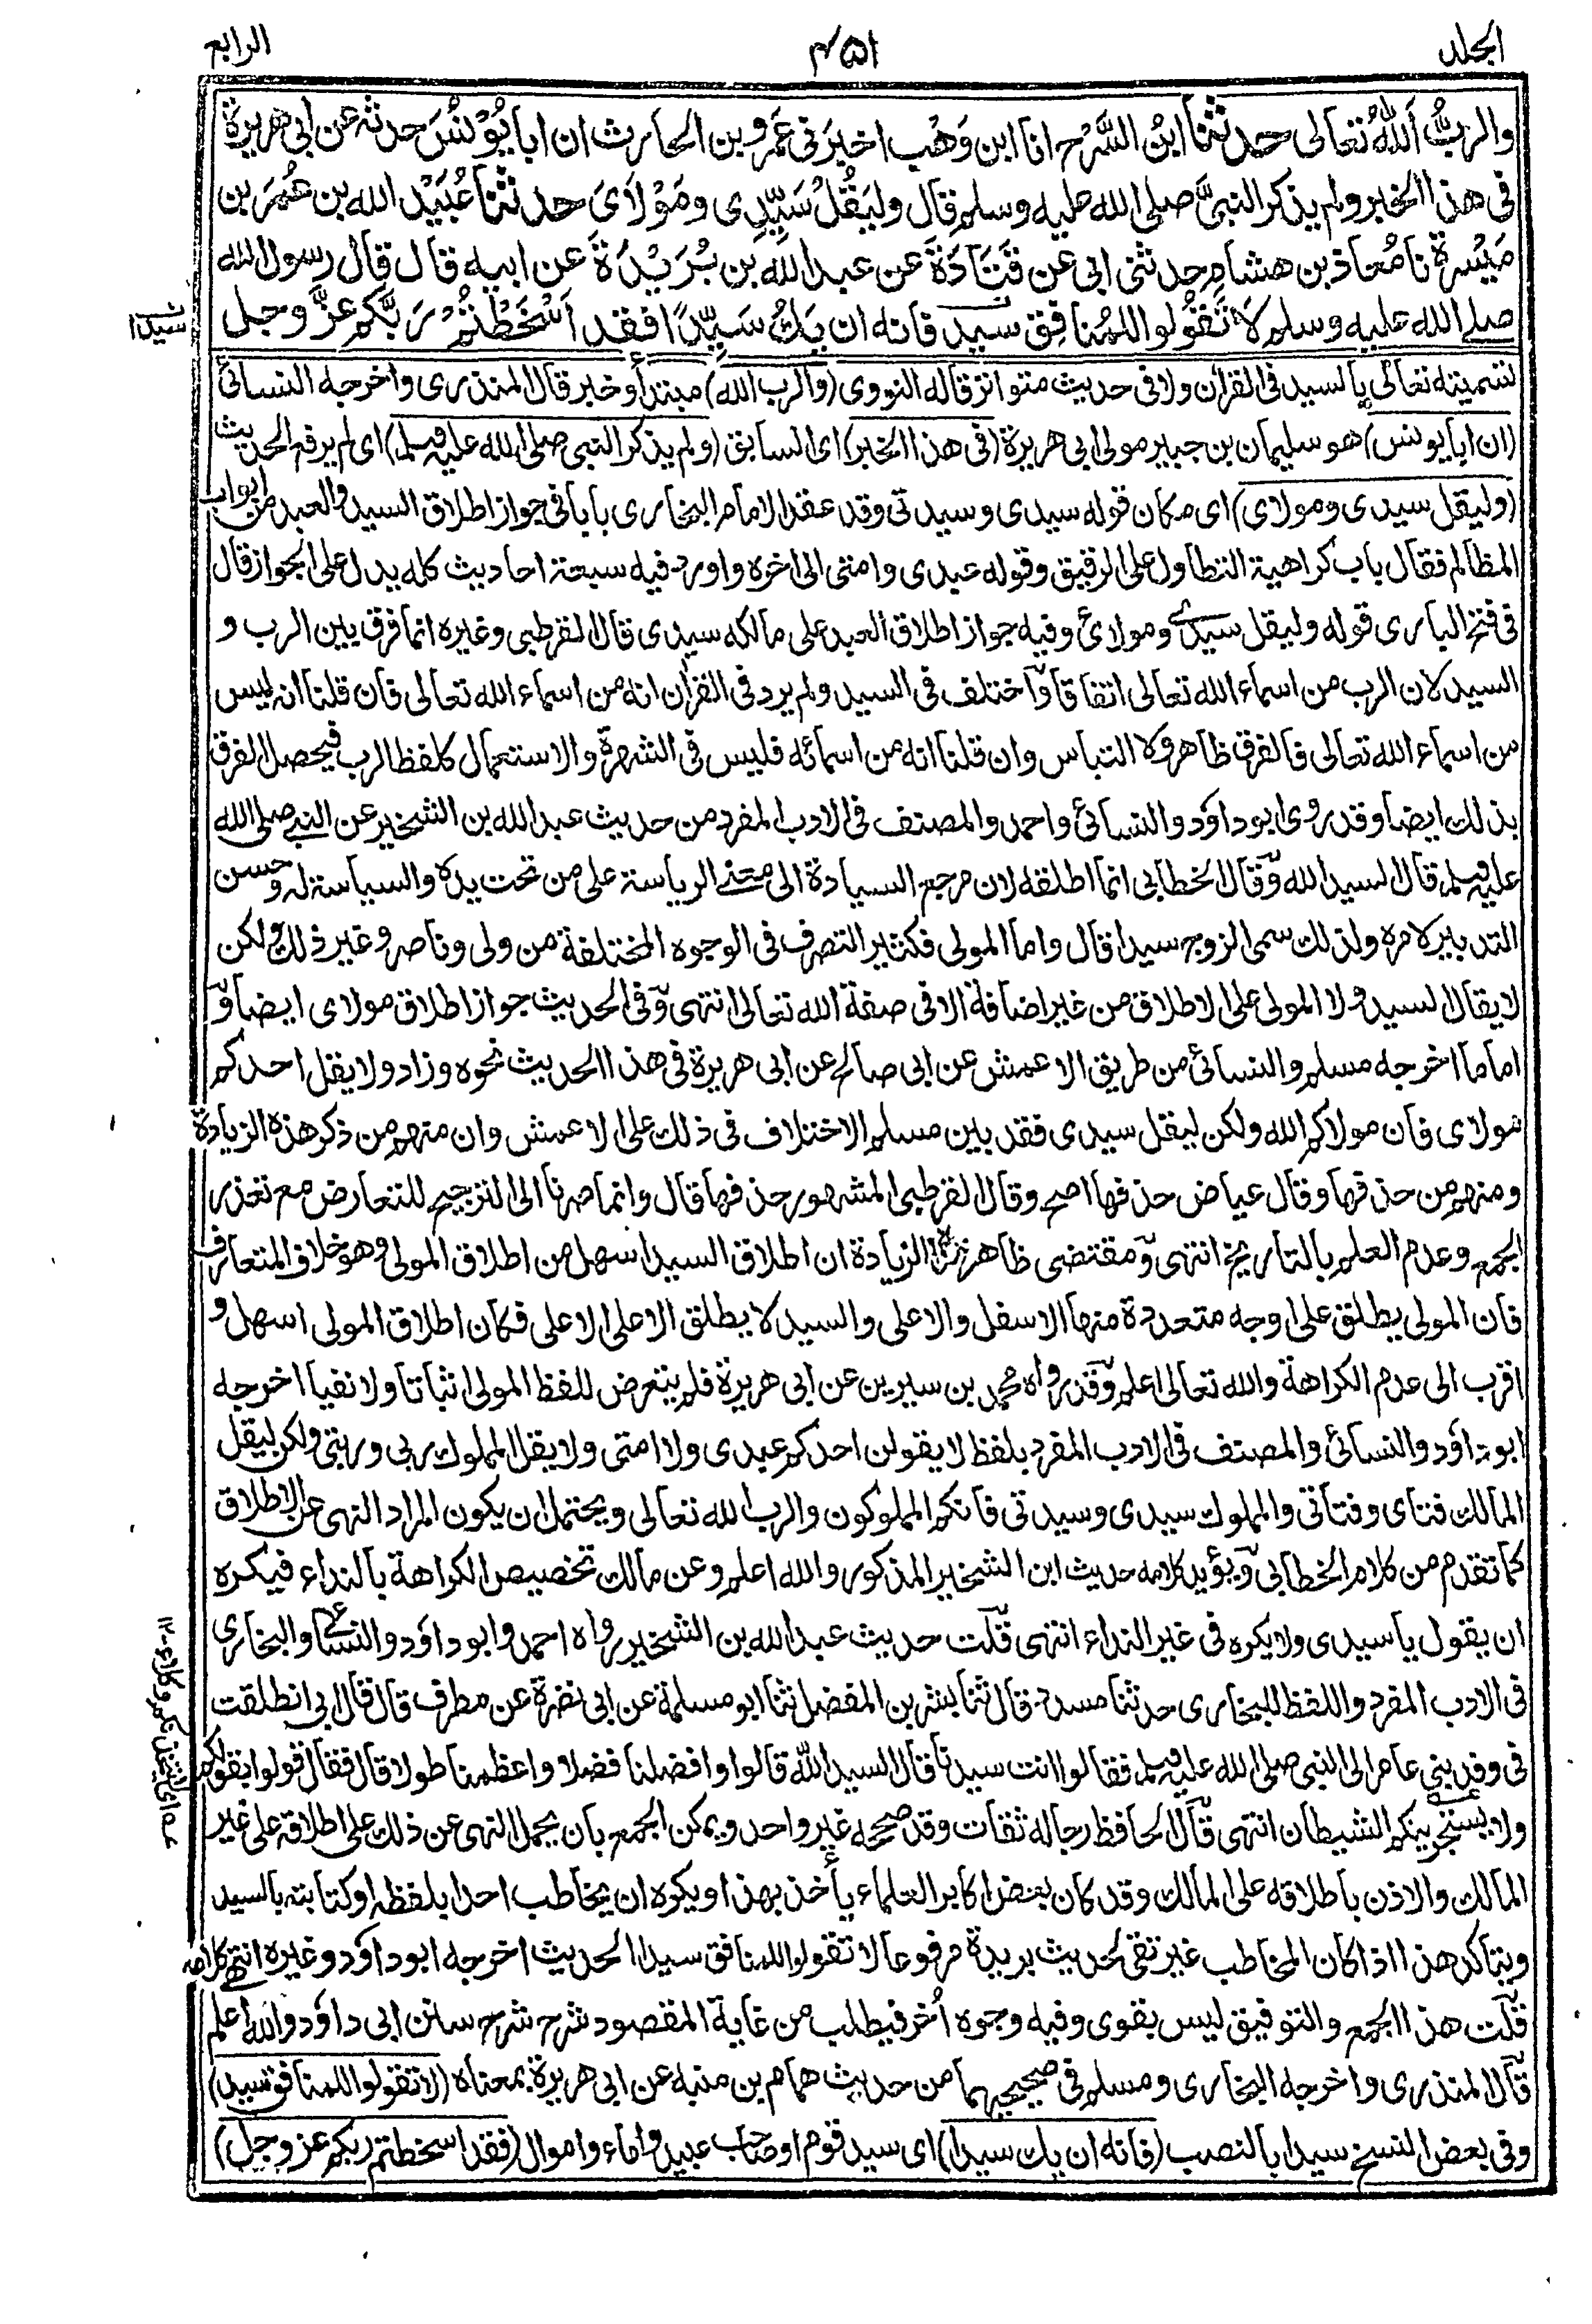 المجلد ٤٥١ الرابع
والربُّ اَللّٰهُ تعالى حدثنا ابنُ السَّرْح انا ابن وَهْب اخبرَنى عَمرو بن الحارث ان ابا يُوْنُسَ حدثه عن ابى هريرة
فى هذا الخبر ولم يذكر النبىَّ صلى الله عليه وسلم قال وليَقُلْ سَيِّدِى ومَوْلَاىَ حدثنا عُبَيْد الله بن عُمَر بن
مَيْسرة نا مُعاذ بن هشام حدثنى ابى عن قَتَادَةَ عن عبد الله بن بُرَيْدَةَ عن ابيه قال قال رسول الله
صلى الله عليه وسلم لَا تَقُولُوا للمُنافِق سيد فانه ان يَكُ سَيِّدًا فقد اَسْخَطْتُمْ رَبَّكم عزَّ وجل
سيدا
تسميته تعالى بالسيد فى القرآن ولا فى حديث متواتر قاله النووى (والرب الله) مبتدأ وخبر قال المنذرى واخرجه النسائى
(ان ابا يونس) هو سليمان بن جبير مولى ابى هريرة (فى هذا الخبر) اى السابق (ولم يذكر النبى صلى الله عليه وسلم) اى لم يرفع الحديث
(وليقل سيدى ومولاى) اى مكان قوله سيدى وسيدتى وقد عقد الامام البخارى بابا فى جواز اطلاق السيد والعبد من ابواب
المظالم فقال باب كراهية التطاول على الرقيق وقوله عبدى وامتى الى اخره واورد فيه سبعة احاديث كله يدل على الجواز قال
فى فتح البارى قوله وليقل سيدى ومولائى وفيه جواز اطلاق العبد على مالكه سيدى قال القرطبى وغيره انما فرق بين الرب و
السيد لان الرب من اسماء الله تعالى اتفاقا واختلف فى السيد ولم يرد فى القرآن انه من اسماء الله تعالى فان قلنا انه ليس
من اسماء الله تعالى فالفرق ظاهر ولا التباس وان قلنا انه من اسمائه فليس فى الشهرة والاستعمال كلفظ الرب فيحصل الفرق
بذلك ايضا وقد روى ابو داؤد والنسائى واحمد والمصنف فى الادب المفرد من حديث عبد الله بن الشخير عن النبى صلى الله
عليه وسلم قال السيد الله وقال الخطابى انما اطلقه لان مرجع السيادة الى معنى الرياسة على من تحت يده والسياسة له وحسن
التدبير لامره ولذلك سمى الزوج سيدا قال واما المولى فكثير التصرف فى الوجوه المختلفة من ولى وناصر وغير ذلك ولكن
لا يقال السيد ولا المولى على الاطلاق من غير اضافة الا فى صفة الله تعالى انتهى وفى الحديث جواز اطلاق مولاى ايضا و
اما ما اخرجه مسلم والنسائى من طريق الاعمش عن ابى صالح عن ابى هريرة فى هذا الحديث نحوه وزاد ولا يقل احدكم
مولاى فان مولاكم الله ولكن ليقل سيدى فقد بين مسلم الاختلاف فى ذلك على الاعمش وان منهم من ذكر هذه الزيادة
ومنهم من حذفها وقال عياض حذفها اصح وقال القرطبى المشهور حذفها قال وانما صرنا الى الترجيح للتعارض مع تعذر
الجمع وعدم العلم بالتاريخ انتهى ومقتضى ظاهر هذه الزيادة ان اطلاق السيد اسهل من اطلاق المولى وهو خلاف المتعارف
فان المولى يطلق على اوجه متعددة منها الاسفل والاعلى والسيد لا يطلق الا على الاعلى فكان اطلاق المولى اسهل و
اقرب الى عدم الكراهة والله تعالى اعلم وقد رواه محمد بن سيرين عن ابى هريرة فلم يتعرض للفظ المولى اثباتا ولا نفيا اخرجه
ابو داؤد والنسائى والمصنف فى الادب المفرد بلفظ لا يقولن احدكم عبدى ولا امتى ولا يقل المملوك ربى وربتى ولكن ليقل
المالك فتاى وفتاتى والمملوك سيدى وسيدتى فانكم المملوكون والرب الله تعالى ويحتمل ان يكون المراد النهى عن الاطلاق
كما تقدم من كلام الخطابى ويؤيد كلامه حديث ابن الشخير المذكور والله اعلم وعن مالك تخصيص الكراهة بالنداء فيكره
ان يقول يا سيدى ولا يكره فى غير النداء انتهى قلت حديث عبد الله بن الشخير رواه احمد وابو داؤد والنسائى والبخارى
فى الادب المفرد واللفظ للبخارى حدثنا مسدد قال ثنا بشر بن المفضل ثنا ابو مسلمة عن ابى نضرة عن مطرف قال قال ابى انطلقت
فى وفد بنى عامر الى النبى صلى الله عليه وسلم فقالوا انت سيدنا قال السيد الله قالوا وافضلنا فضلا واعظمنا طولا قال فقال قولوا بقولكم
ولا يستجرينكم الشيطان انتهى قال الحافظ رجاله ثقات وقد صححه غير واحد ويمكن الجمع بان يحمل النهى عن ذلك على اطلاقه على غير
المالك والاذن باطلاقه على المالك وقد كان بعض اكابر العلماء يأخذ بهذا ويكره ان يخاطب احدا بلفظه او كتابته بالسيد
ويتأكد هذا اذا كان المخاطب غير تقى لحديث بريدة مرفوعا لا تقولوا للمنافق سيدا الحديث اخرجه ابو داؤد وغيره انتهى كلامه
قلت هذا الجمع والتوفيق ليس بقوى وفيه وجوه اُخر فيطلب من غاية المقصود شرح شرح سنن ابى داؤد والله اعلم
قال المنذرى واخرجه البخارى ومسلم فى صحيحيهما من حديث همام بن منبه عن ابى هريرة بمعناه (لا تقولوا للمنافق سيد)
وفى بعض النسخ سيدا بالنصب (فانه ان يك سيدا) اى سيد قوم او صاحب عبيد واماء واموال (فقد اسخطتم ربكم عز وجل)